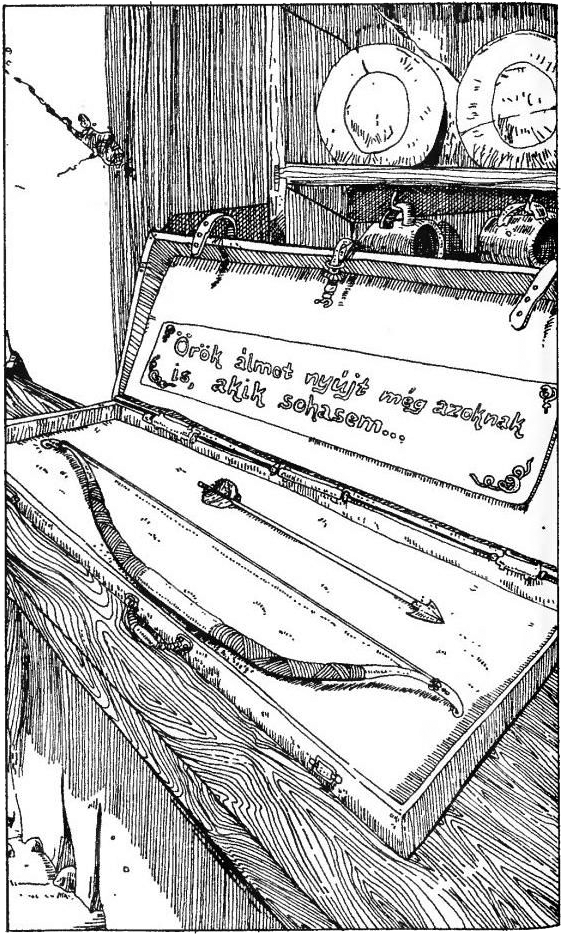 Örök álmot nyújt még azoknak
is, akik sohasem...